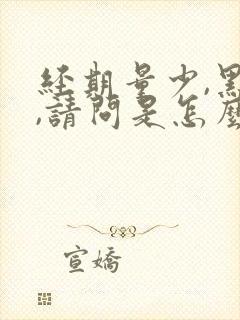 經期量少,黑
,請問是怎麼
宣嬌